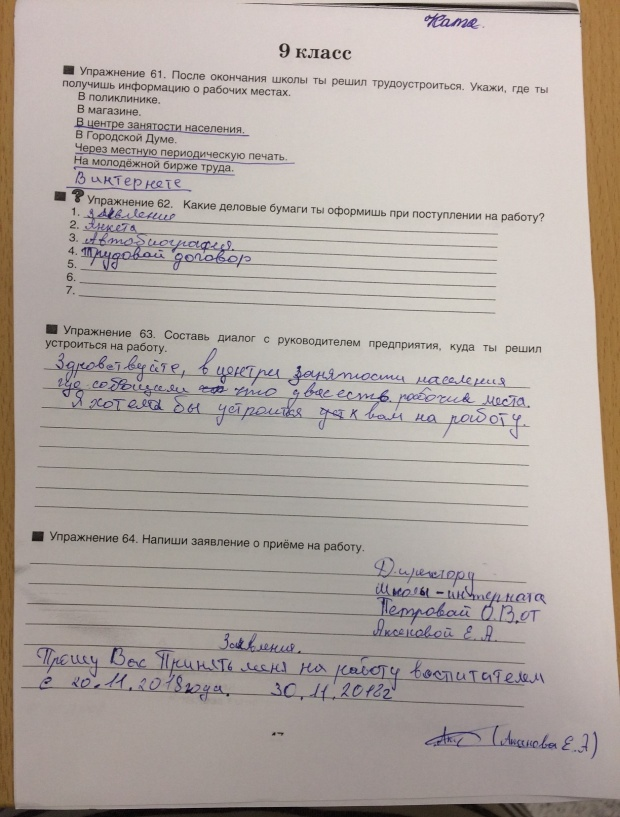 Катя.
9 класс
Упражнение 61. После окончания школы ты решил трудоустроиться. Укажи, где ты
получишь информацию о рабочих местах.
В поликлинике.
В магазине.
В центре занятости населения.
В Городской Думе.
Через местную периодическую печать.
На молодёжной бирже труда.
В интернете
? Упражнение 62. Какие деловые бумаги ты оформишь при поступлении на работу?
1. Заевление
2. Анкета
3. Автобиография.
4. Трудовой договор
5.
6.
7.
Упражнение 63. Составь диалог с руководителем предприятия, куда ты решил
устроиться на работу.
Здравствуйте, в центри занятости населения
где собощили что увас есть рабочие места.
Я хотела бы устроится к вам на работу.
Упражнение 64. Напиши заявление о приёме на работу.
Директору
школы-интерната
Петровой О.В. от
Аксеновой Е. А.
Заевления.
Прошу Вас Принять меня на работу воспитателем
с 20.11.2018года. 30.11.2018г
(Аксенова Е.А)